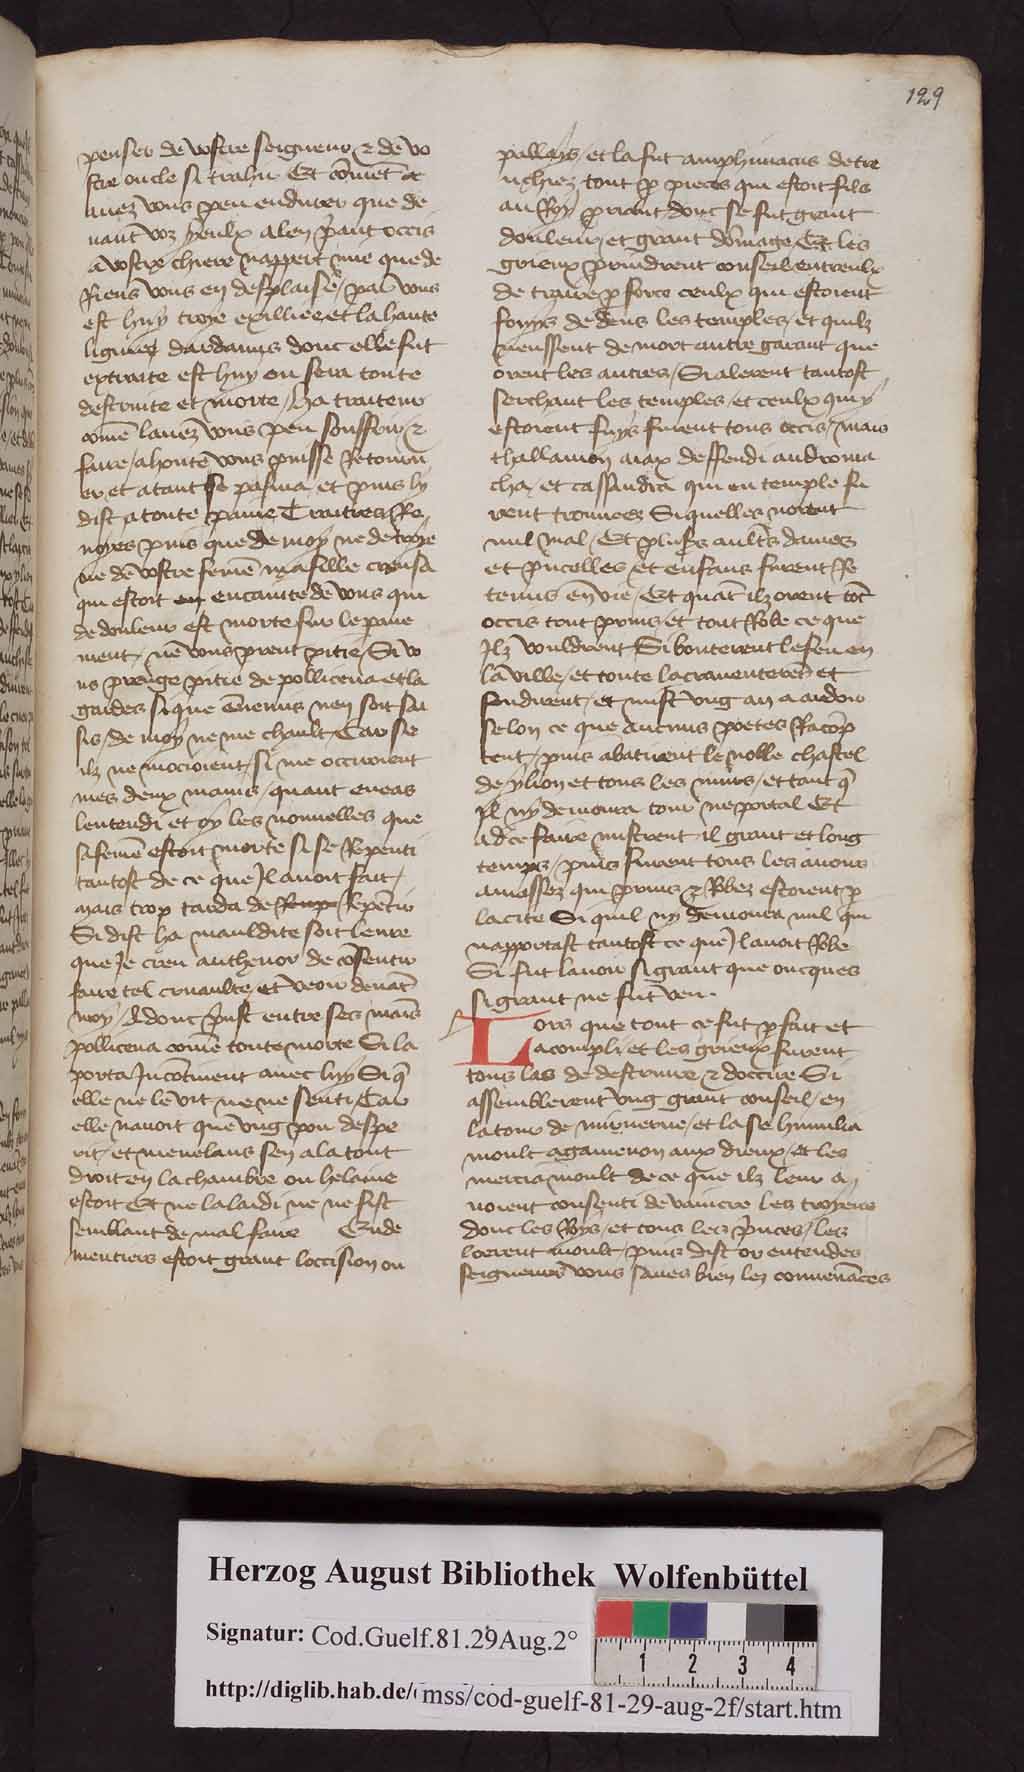 129
penser de vostre seigneur & de vo
stre oncle si trahir Et cōmēt
auez vous peu endurer que de
uant voz yeulx a len priant occis
a vostre chiere nappert mie que de
Riens vous en desplaise / par vous
est huy troye exilliee et la haute
lignies dardanus donc elle fut
extraite est huy ou sera toute
destruite et morte / ha traiteur
cōme lauez vous peu souffrir &
faire / a honte vous puisse Retourn
er et a tant se pasma et puis ly
dist a toute paine Traitres Re
noyes puis que de moy ne de troye
ne de vostre femē ma fille creusa
qui estoit en encainte de vous qui
de douleur est morte sur le paue
ment / ne vous prent pitie / Si vo
us prenge pitie de pollicena et la
gardes si que ēnemis nen soit sai
sis / de moy ne me chault / Car se
ilz ne mocioient / si me occiroient
mes deux mains / quant eneas
lentendi et oy les nouuelles que
sa femē estoit morte si se Repenti
tantost de ce que Il auoit fait /
mais trop tarda de Repētir
Si dist ha mauldite soit leure
que Je creu anthenor de cōsentir
faire tel cruaulte et veoir deuāt
moy / donc prist entre ses mains
pollicena cōme toute morte Si la
porta Incōtinent auec luy Si q̄
elle ne le vit ne ne senti / Car
elle nauoit que vng pou despe
rit / et menelaus sen ala tout
droit en la chambre ou helaine
estoit Et ne la laidi ne ne fist
semblant de mal faire Ende
mentiers estoit grant loccision ou
pallays / et la fut amphimacus detre
nchiez tout p pieces qui estoit fils
au Roy priant donc se fut grant
douleur / et grant dōmage / Et les
grieux prindrent conseil entreulx
de traire p force ceulx qui estoient
fouys dedens les temples / et quilz
neussent de mort autre garant que
orent les autres / Si alerent tantost
serchant les temples / et ceulx qui y
estoient fuys furent tous occis / mais
thallamon aiax deffendi androma
cha / et cassandra qui en temple fu
rent trouuees Si quelles norent
nul mal / Et plusrs aultrs dames
et pucelles et enfans furent Re
tenus en vie / Et quāt ilz orent tot
occis tout prins et tout Robe ce que
Ilz vouldrent Si bouterent le feu en
la ville / et toute la crauenterēt et
fondirent / et mist vng an a ardoir
selon ce que aucuns poetes Racōp
tent / puis abatirent le nolle chastel
de ylion et tous les murs / et tant q̄
Il ny demoura tour ne portal Et
ad ce faire mistrent il grant et long
temps / puis furent tous les auoirs
amassez qui prins & Robez estoient p
la cite Si quil ny demoura nul qui
napportast tantost ce que Il auoit Robe
Si fut lauoir si grant que oncques
si grant ne fut veu .
Lors que tout ce fut pfait et
acompli et les grieux furent
tous las de destruire & doccire Si
assemblerent vng grant conseil / en
la tour de minerue / et la se humilia
moult agamenon aux dieux / et les
mercia moult de ce que ilz leur a
uoient consenti de vaincre les troyens
donc les Roys / et tous les princes / les
loerent moult / puis dist or entendes
seigneurs vous saues bien les conuenāces
Herzog August Bibliothek Wolfenbüttel
Signatur: Cod.Guelf.81.29Aug.2°
http://diglib.hab.de/mss/cod-guelf-81-29-aug-2f/start.htm
1 2 3 4